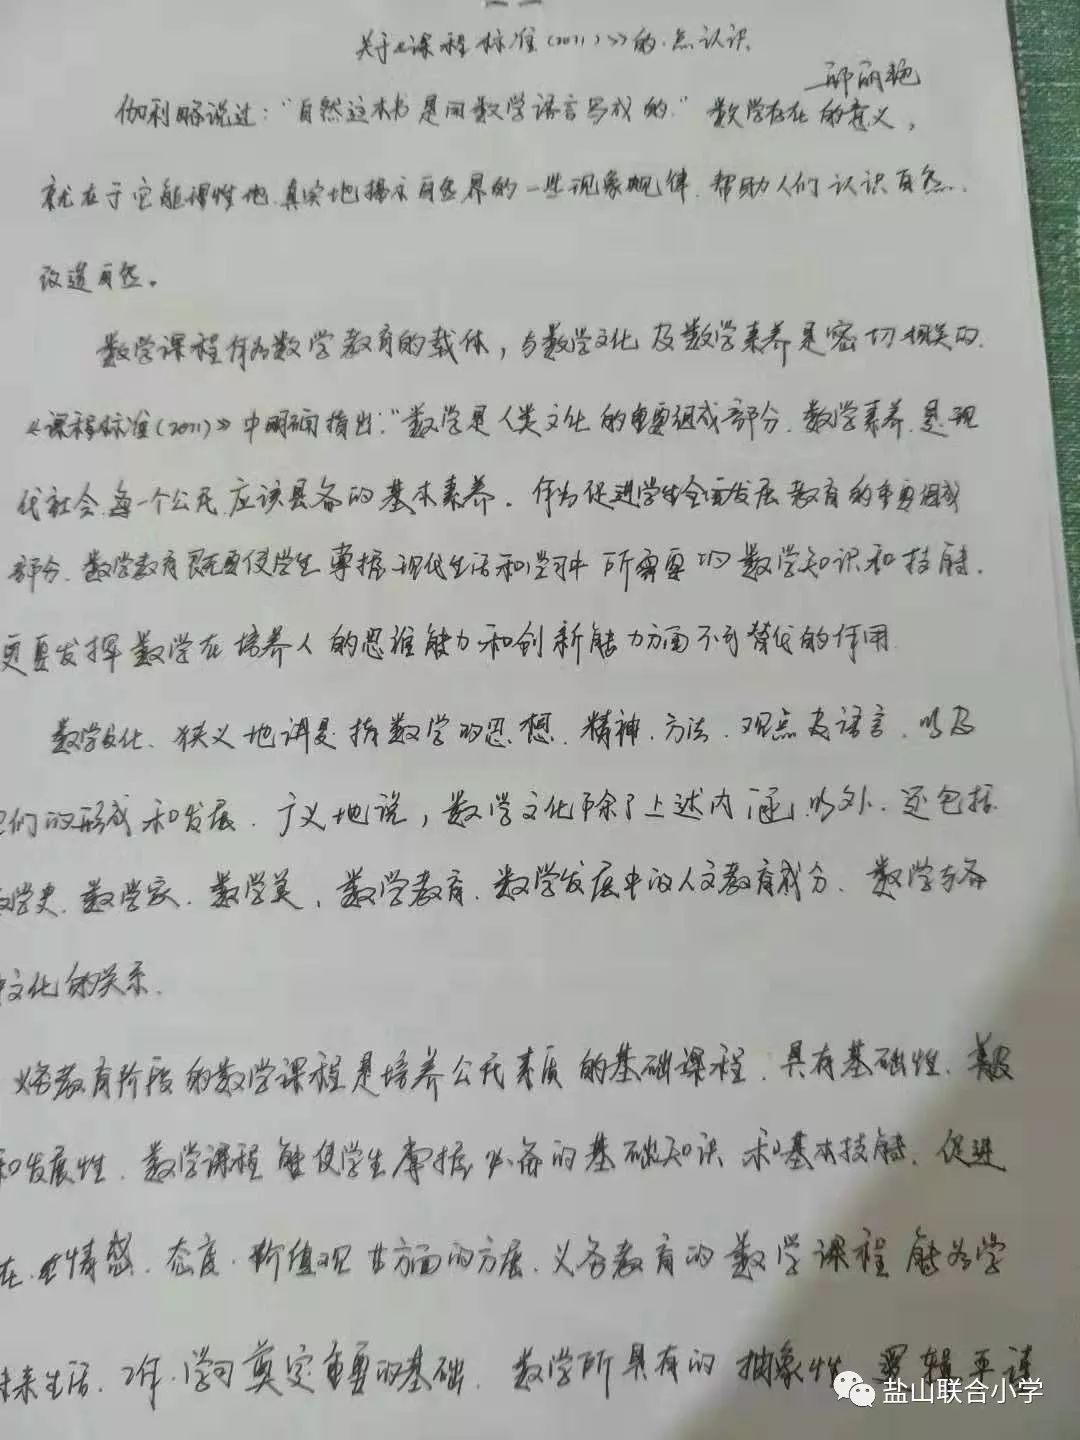 关于《课程标准(2011)》的点认识
邱丽艳
伽利略说过:"自然这本书是用数学语言写成的."数学存在的意义,
就在于它能理性地、真实地揭示自然界的一些现象规律,帮助人们认识自然.
改造自然。
数学课程作为数学教育的载体,与数学文化及数学素养是密切相关的.
《课程标准(2011)》中明确指出:"数学是人类文化的重要组成部分.数学素养是现
代社会每一个公民应该具备的基本素养.作为促进学生全面发展教育的重要组成
部分.数学教育既要使学生掌握现代生活和学习中所需要的数学知识和技能.
更要发挥数学在培养人的思维能力和创新能力方面不可替代的作用
数学文化、狭义地讲是指数学的思想、精神、方法、观点及语言、以及
们的形成和发展.广义地说,数学文化除了上述内涵以外.还包括
学史、数学家、数学美,数学教育.数学发展中的人文教育成分、数学与各
文化的关系.
义务教育阶段的数学课程是培养公民素质的基础课程.具有基础性、普及
和发展性.数学课程能使学生掌握必备的基础知识和基本技能.促进
在情感、态度、价值观等方面的方展.义务教育的数学课程能为学
未来生活、工作、学习奠定重要的基础.数学所具有的抽象性、逻辑严谨
盐山联合小学